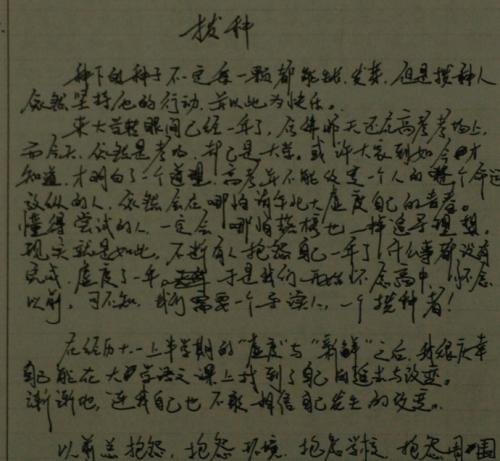 拨种
种下的种子不一定每一颗都能发芽，但是拨种人
依然坚持他的行动，并以此为快乐。
来大学转眼间已经一年了，仿佛昨天还在高考考场上，
而今天，依然是考场，却已是大学。或许大家到如今才
知道，才明白了一个道理，高考并不能改变一个人的整个命运
放纵的人，依然会在哪怕首都北大虚度自己的青春。
懂得尝试的人，一定会哪怕 也一样追寻理想。
现实就是如此，不断有人抱怨自己一年了什么事都没有
完成，虚度了一年。于是我们开始怀念高中，怀念
以前。可不知，我们需要一个导读人，一个拨种者！
在经历大一上半学期的“虚度”与“新鲜”之后，我很庆幸
自己能在大学语文课上找到了自己的追求与改变。
渐渐地，连我自己也不敢相信自己发生的改变。
以前总抱怨，抱怨环境，抱怨学校，抱怨周围